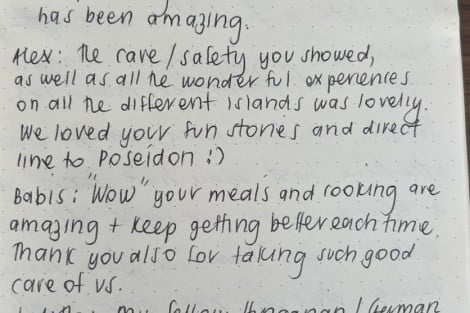 has been amazing.
Alex: The care/safety you showed,
as well as all the wonderful experiences
on all the different islands was lovely.
We loved your fun stories and direct
line to Poseidon :)
Babis: "Wow" your meals and cooking are
amazing + keep getting better each time.
Thank you also for taking such good
care of us.
my fellow / German